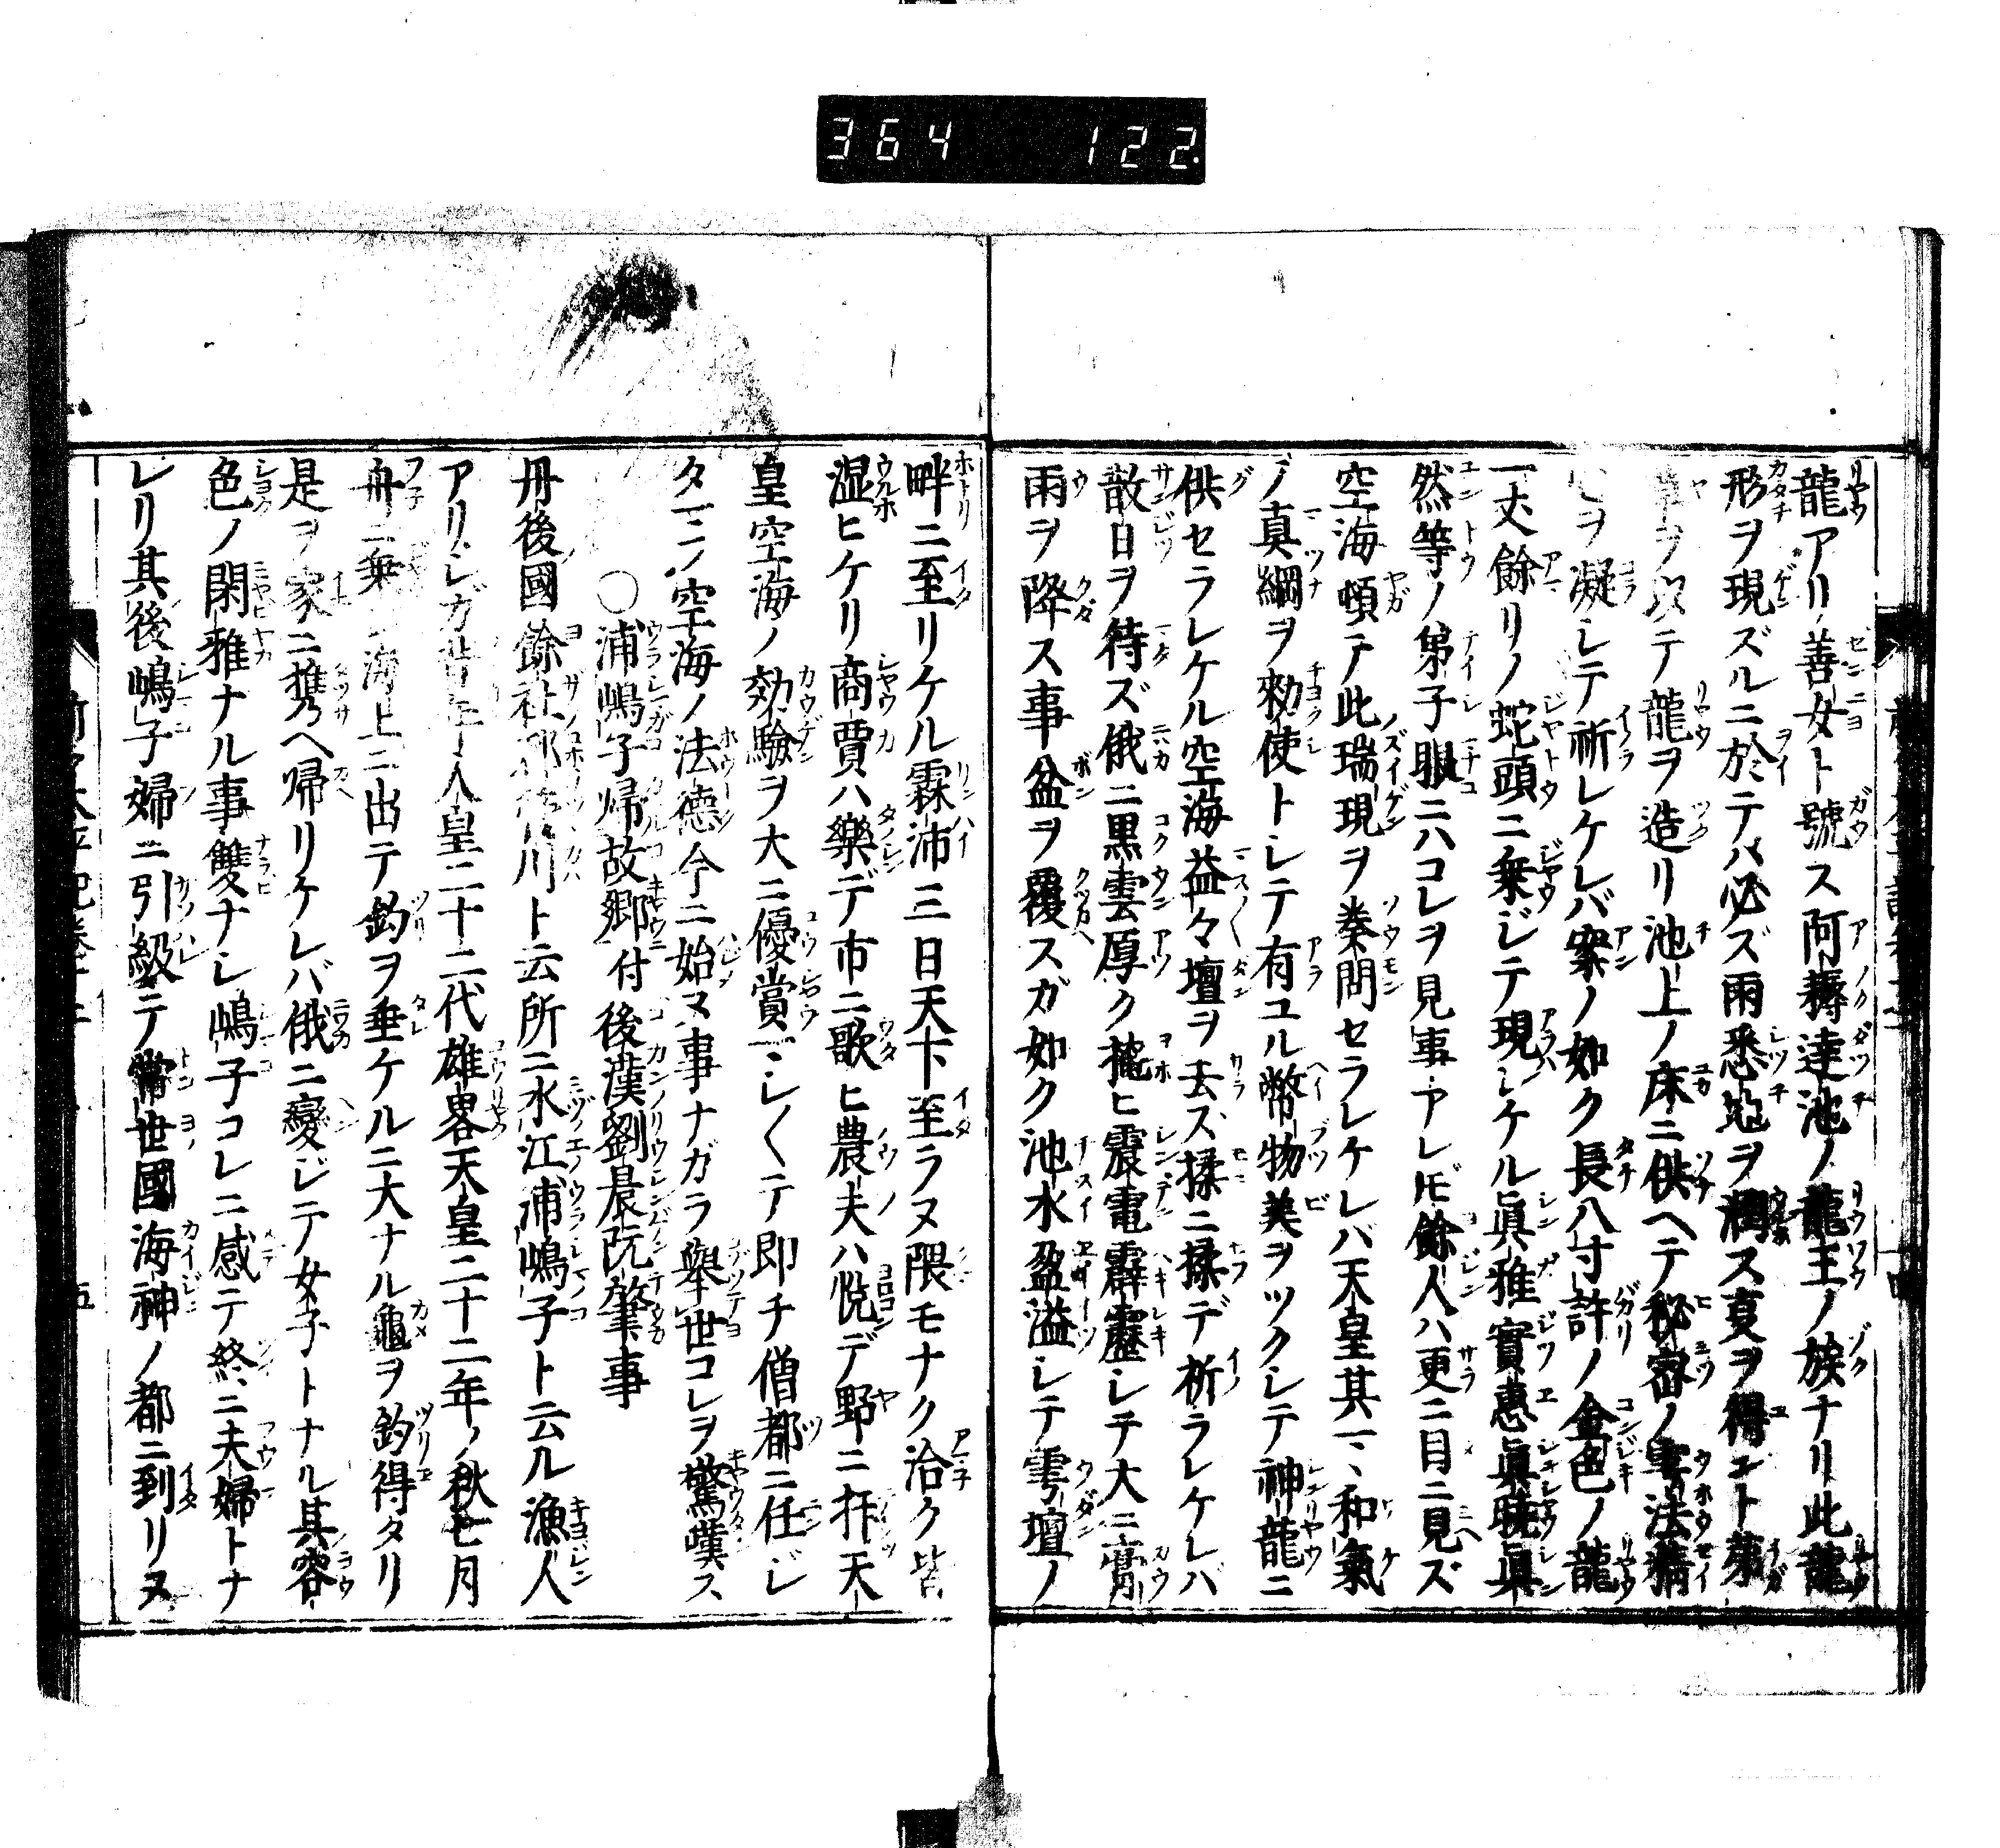 364 122
龍アリ善女ト號ス阿耨達池ノ龍王ノ族ナリ此龍
形ヲ現ズルニ於テハ必ズ雨悉地ヲ潤ス夏ヲ得ント
ヲ以テ龍ヲ造リ池上ノ床ニ供ヘテ秘密ノ雩法
ヲ凝シテ祈レケレバ案ノ如ク長八寸許ノ金色ノ龍
一丈餘リノ蛇頭ニ乗ジテ現レケル眞雅實惠眞暁眞
然等ノ弟子眼ニハコレヲ見事アレ𪜈餘人ハ更ニ目ニ見ズ
空海頓テ此瑞現ヲ奏問セラレケレバ天皇其マヽ和氣
ノ真綱ヲ勅使トシテ有ユル幣物美ヲツクシテ神龍ニ
供セラレケル空海益々壇ヲ去ズ揉ニ揉デ祈ラレケレバ
散日ヲ待ズ俄ニ黒雲厚ク掩ヒ震電霹靂シテ大ニ膏
雨ヲ降ス事盆ヲ覆スガ如ク池水盈溢シテ雩壇ノ
畔ニ至リケル霖沛三日天下至ラヌ隈モナク洽ク皆
湿ヒケリ商賈ハ樂デ市ニ歌ヒ農夫ハ悦デ野ニ抃天
皇空海ノ効驗ヲ大ニ優賞マシ〱テ即チ僧都ニ任ジ
タマフ空海ノ法德今ニ始ヌ事ナガラ舉世コレヲ驚嘆ス
○浦嶋子帰故郷付後漢劉晨阮肇事
丹後國餘社郡川ト云所ニ水江浦嶋子ト云ル漁人
アリシガ人皇二十二代雄畧天皇二十二年ノ秋七月
舟ニ乗海上ニ出テ釣ヲ垂ケルニ大ナル龜ヲ釣得タリ
是ヲ家ニ携ヘ帰リケレバ俄ニ變ジテ女子トナル其容
色ノ閑雅ナル事雙ナシ嶋子コレニ感テ終ニ夫婦トナ
レリ其後嶋子婦ニ引級テ常世國海神ノ都ニ到リヌ